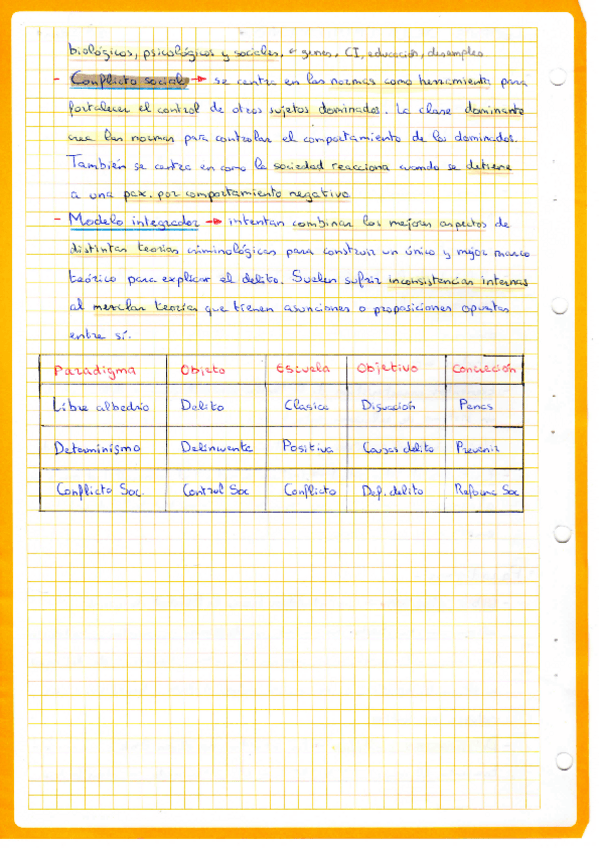 biológicos, psicológicos y sociales, genes, CI, educación, desempleo
- Conflicto social → se centra en las normas como herramienta para
fortalecer el control de otros sujetos dominados. La clase dominante
crea las normas para controlar el comportamiento de los dominados.
También se centra en como la sociedad reacciona cuando se detiene
a una pax. por comportamiento negativo.
- Modelo integrador → intentan combinar los mejores aspectos de
distintas teorías criminológicas para construir un único y mejor marco
teórico para explicar el delito. Suelen sufrir inconsistencias internas
al mezclar teorías que tienen asunciones o proposiciones opuestas
entre sí.
Paradigma Objeto Escuela Objetivo Concreción
Libre albedrío Delito Clásica Disuación Penas
Determinismo Delincuente Positiva Causas delito Prevenir
Conflicto Soc. Control Soc Conflicto Def. delito Reforma Soc